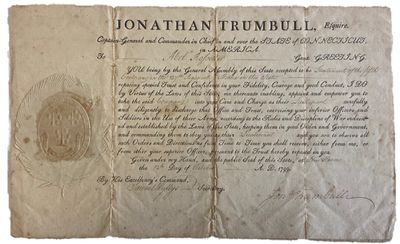 JONATHAN TRUMBULL, Esquire,
Captain-General and Commander in Chief in and over the STATE of CONNECTICUT,
in AMERICA.
To Gent. GREETING.
YOU being by the General Assembly of this State accepted to be Lieutenant of the
Company in the Regiment in this State
reposing special Trust and Confidence in your Fidelity, Courage and good Conduct, I DO
by Virtue of the Laws of this State me thereunto enabling, appoint and empower you to
take the said Company into your Care and Charge as their Lieutenant carefully
and diligently to discharge that Office and Trust, exercising your inferior Officers and
Soldiers in the Use of their Arms, according to the Rules and Discipline of War ordained
and established by the Laws of this State, keeping them in good Order and Government,
and commanding them to obey you as their Lieutenant and you are to observe all
such Orders and Directions as from Time to Time you shall receive, either from me, or
from other your superior Officer, pursuant to the Trust hereby reposed in you.
Given under my Hand, and the public Seal of this State, at
the Day of A. D. 179
By His Excellency's Command,
Secretary.
Jonth Trumbull